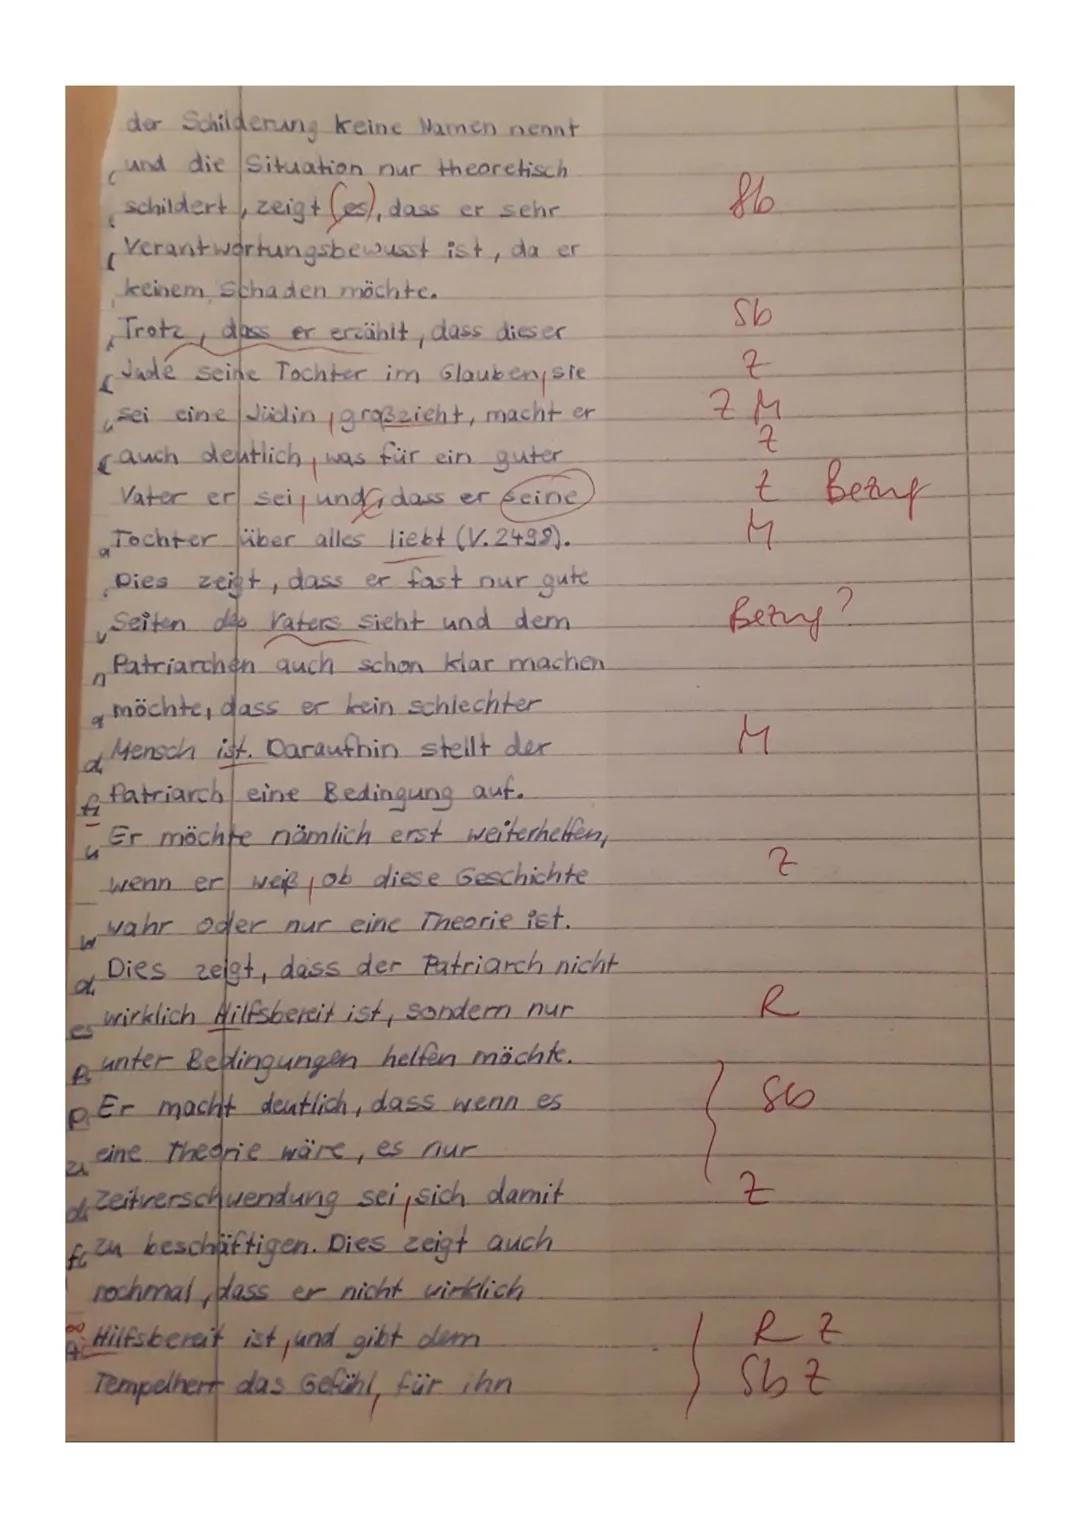 der Schilderung keine Namen nennt
und die Situation nur theoretisch
schildert, zeigt (es), dass er sehr Sb
Verantwortungsbewusst ist, da er
keinem Schaden möchte.
Trotz, dass er erzählt, dass dieser Sb
Jude seine Tochter im Glauben, sie Z
sei eine Jüdin, großzieht, macht er Z M
auch deutlich, was für ein guter Z
Vater er sei, und, dass er seine Z Bezug
Tochter über alles liebt (V. 2498). M
Dies zeigt, dass er fast nur gute
Seiten des Vaters sieht und dem Bezug?
Patriarchen auch schon klar machen
möchte, dass er kein schlechter
Mensch ist. Daraufhin stellt der M
Patriarch eine Bedingung auf.
Er möchte nämlich erst weiterhelfen,
wenn er weiß, ob diese Geschichte Z
wahr oder nur eine Theorie ist.
Dies zeigt, dass der Patriarch nicht
wirklich Hilfsbereit ist, sondern nur R
unter Bedingungen helfen möchte.
Er macht deutlich, dass wenn es Sb
eine Theorie wäre, es nur
Zeitverschwendung sei, sich damit Z
zu beschäftigen. Dies zeigt auch
nochmal, dass er nicht wirklich
Hilfsbereit ist, und gibt dem R Z
Tempelherr das Gefühl, für ihn Sb Z